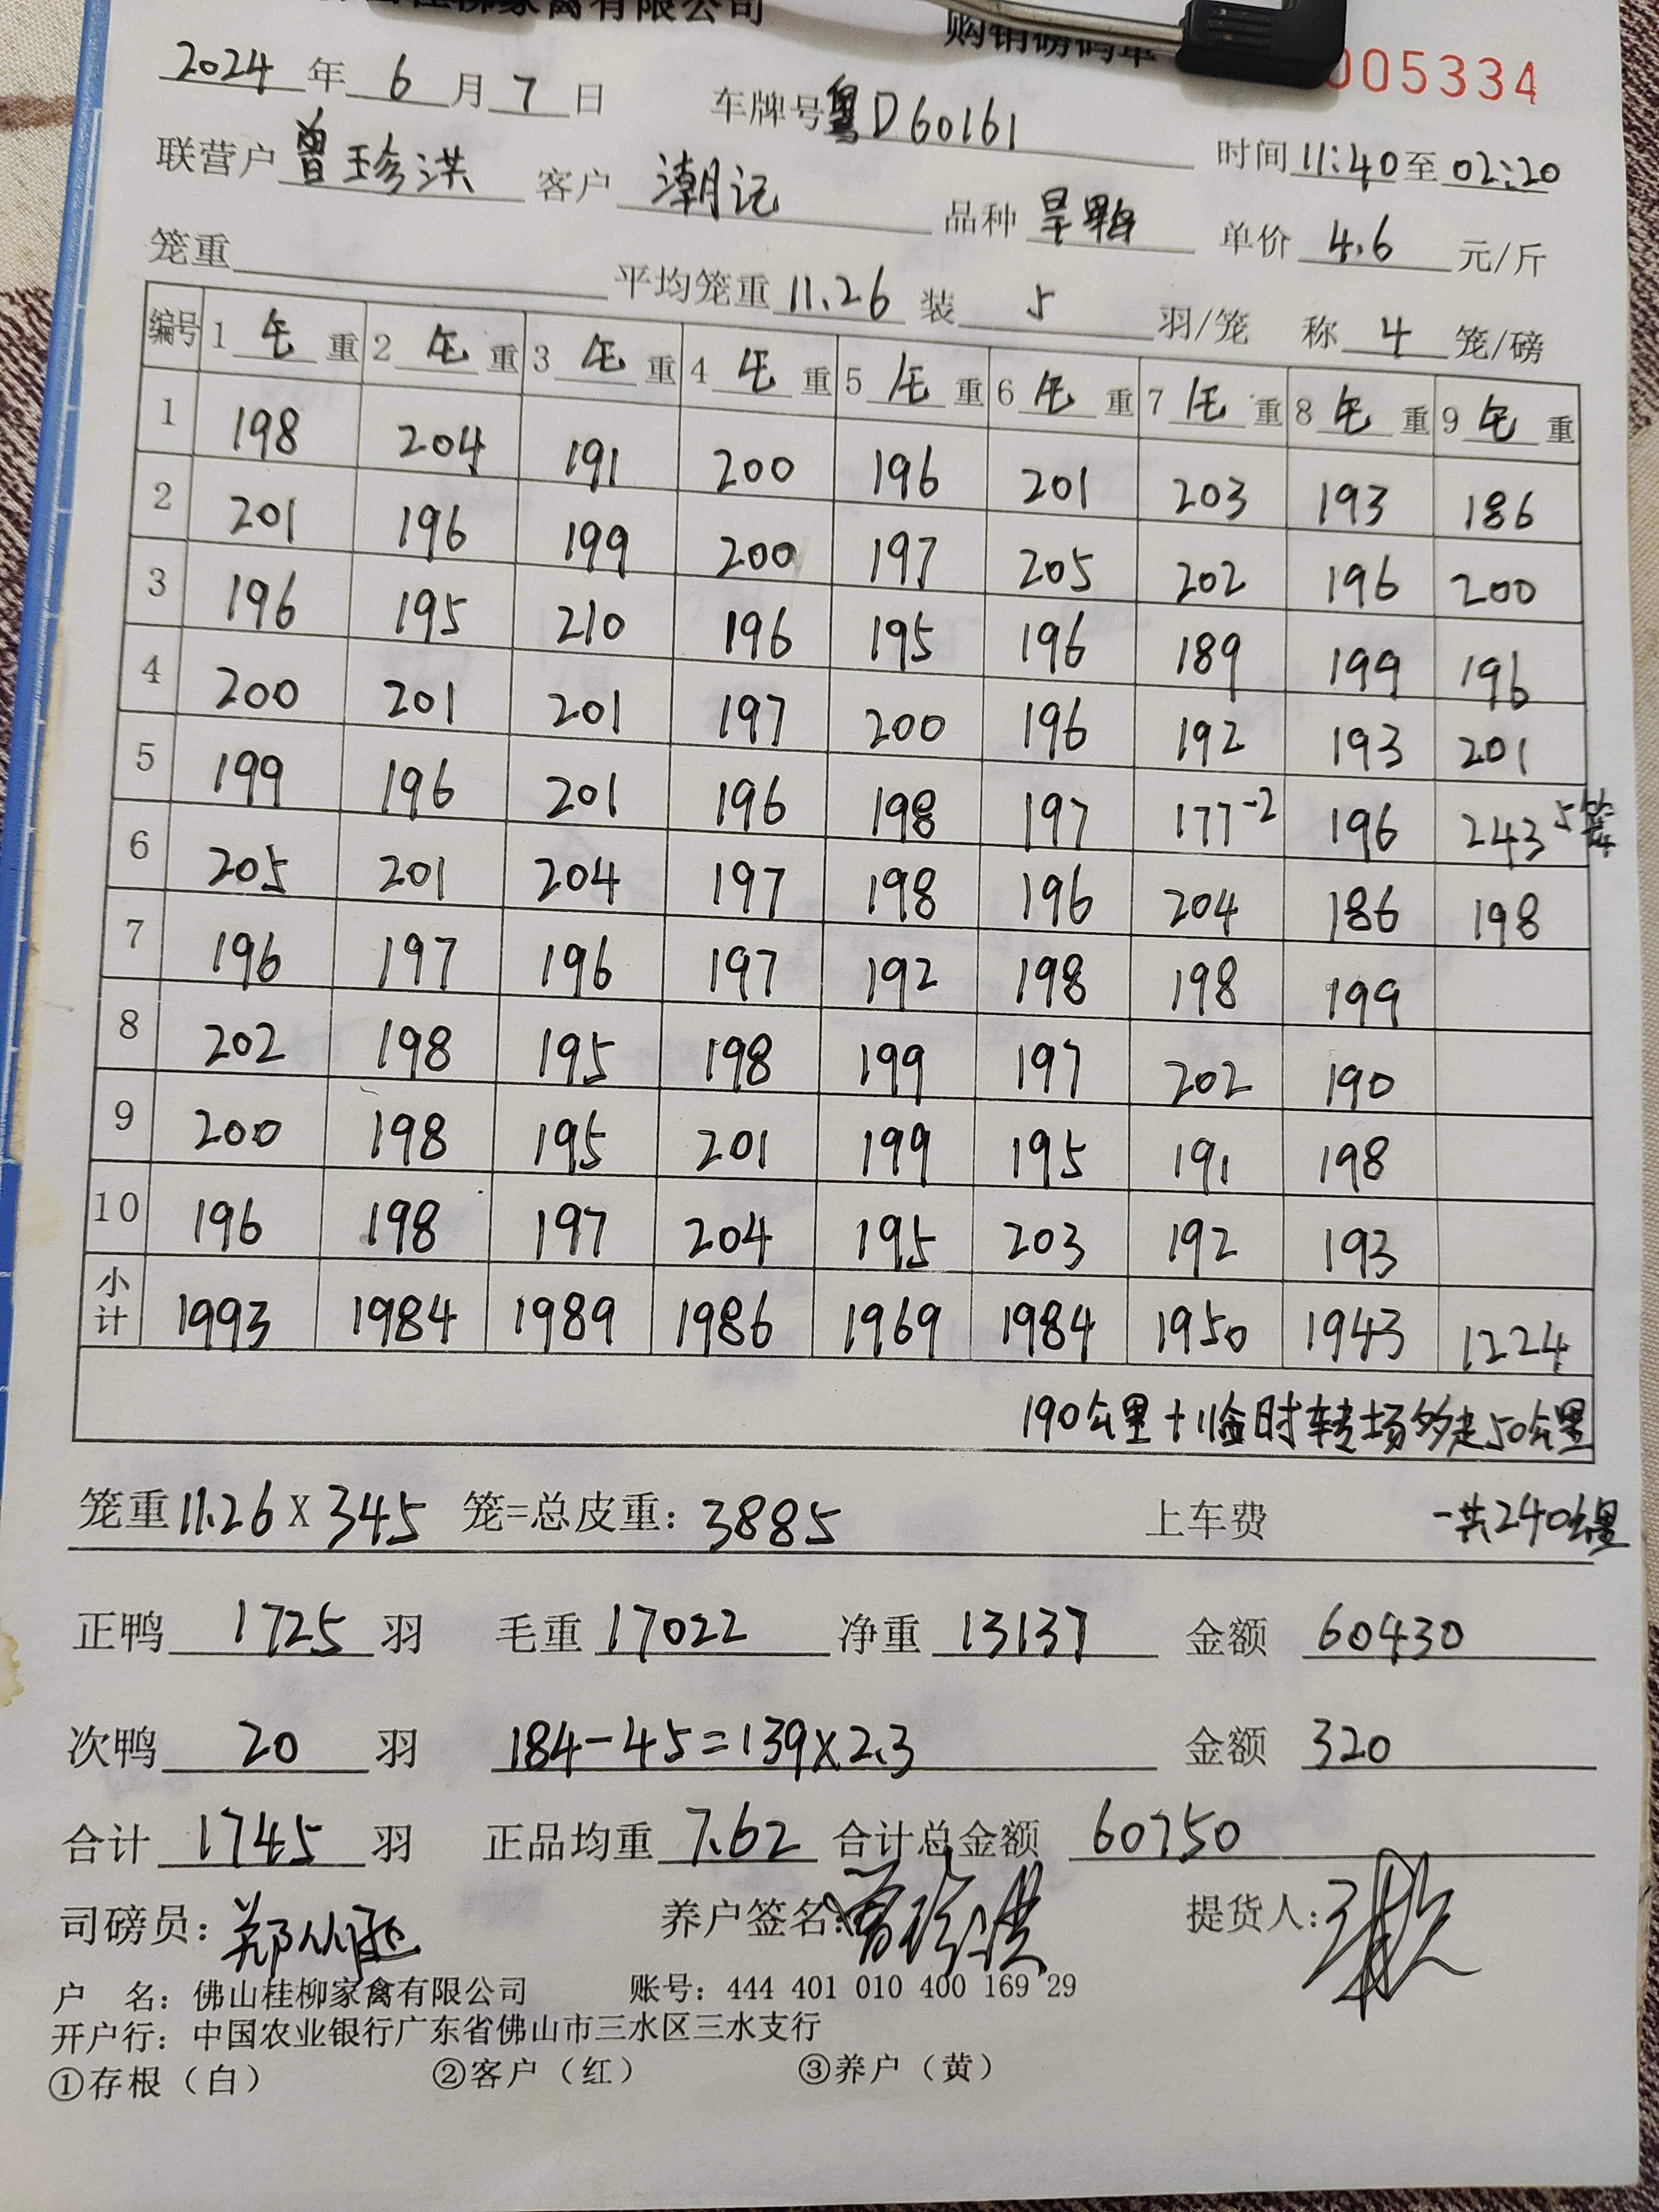 山桂柳家禽有限公司 购销磅码单 005334
2024年6月7日 车牌号粤D60161 时间11:40至02:20
联营户曾珍洪 客户潮记 品种旱鸭 单价4.6元/斤
笼重 平均笼重11.26 装5羽/笼 称4笼/磅
编号 1毛重 2毛重 3毛重 4毛重 5毛重 6毛重 7毛重 8毛重 9毛重
1 198 204 191 200 196 201 203 193 186
2 201 196 199 200 197 205 202 196 200
3 196 195 210 196 195 196 189 199 196
4 200 201 201 197 200 196 192 193 201
5 199 196 201 196 198 197 177-2 196 243 5笼
6 205 201 204 197 198 196 204 186 198
7 196 197 196 197 192 198 198 199
8 202 198 195 198 199 197 202 190
9 200 198 195 201 199 195 191 198
10 196 198 197 204 195 203 192 193
小计 1993 1984 1989 1986 1969 1984 1950 1943 1224
190公里+临时转场多走50公里
笼重11.26X345 笼=总皮重：3885 上车费 一共240公里
正鸭1725羽 毛重17022 净重13137 金额60430
次鸭20羽 184-45=139X2.3 金额320
合计1745羽 正品均重7.62 合计总金额60750
司磅员： 养户签名：曾珍洪 提货人：
户 名：佛山桂柳家禽有限公司 账号：444 401 010 400 169 29
开户行：中国农业银行广东省佛山市三水区三水支行
①存根（白） ②客户（红） ③养户（黄）